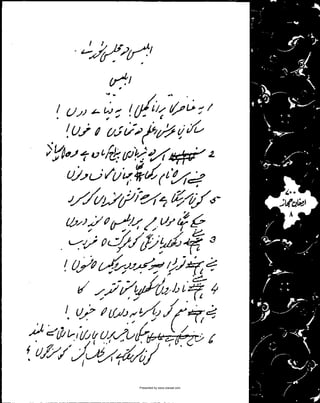 ابلیس کی مجلس شوریٰ
ابلیس
یہ عناصر کا پرانا کھیل! یہ دنیائے دوں!
ساکنان عرش اعظم کی تمناؤں کا خوں!
2 اس کی بربادی پہ آج آمادہ ہے وہ کارساز
جس نے اس کا نام رکھا تھا جہان کاف و نوں
5 کون کر سکتا ہے اس کی آتش سوزاں کو سرد
جس کے ہنگاموں میں ہو ابلیس کا سوز دروں
3 میں نے دکھلایا فرنگی کو ملوکیت کا خواب
میں نے توڑا مسجد و دیر و کلیسا کا فسوں!
4 میں نے ناداروں کو سکھلایا سبق تقدیر کا
میں نے منعم کو دیا سرمایہ داری کا جنوں!
6 جس کی شاخیں ہوں ہماری آبیاری سے بلند
کون کر سکتا ہے اس نخل کہن کو سرنگوں!
ارمغان حجاز
۸
Presented by www.iqbalia.com